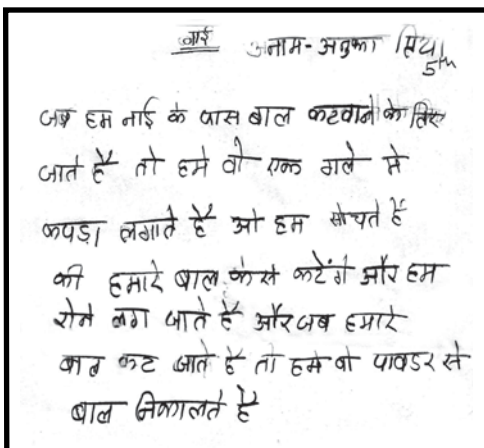 नाई अनाम-अनुका प्रिया
5th
जब हम नाई के पास बाल कटवाने के लिए
जाते है तो हमे वो एक गले मे
कपड़ा लगाते है ओ हम सोचते है
की हमारे बाल कैसे कटेंगे और हम
रोने लग जाते है और जब हमारे
बाल कट जाते है तो हमे वो पावडर से
बाल निकालते है